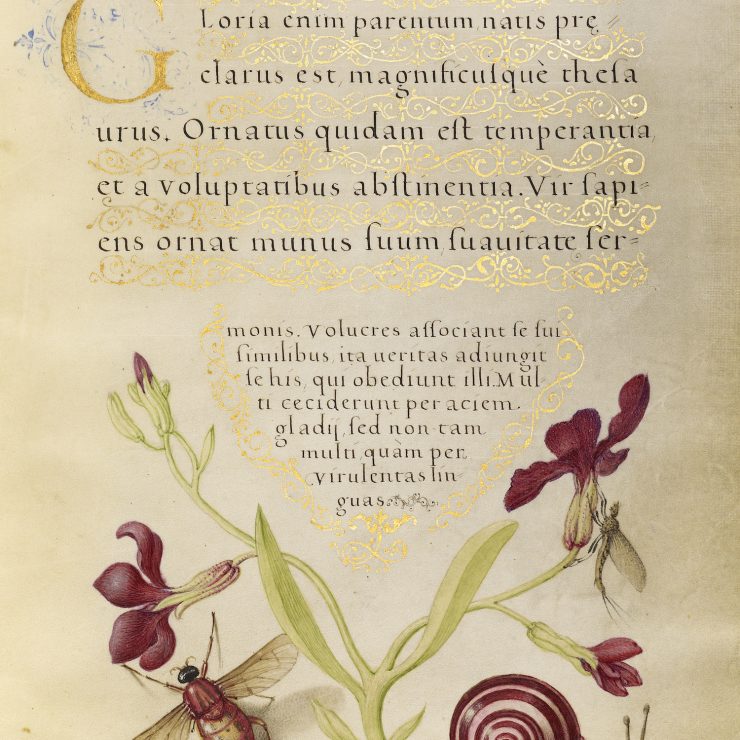 Gloria enim parentum, natis prę=
clarus est, magnificusquè thesa
urus. Ornatus quidam est temperantia,
et a voluptatibus abstinentia. Vir sapi=
ens ornat munus suum, suavitate ser=
monis. Volucres associant se sui
similibus, ita veritas adiungit
se his, qui obediunt illi. Mul-
ti ceciderunt per aciem
gladij, sed non tam
multi, quàm per
virulentas lin-
guas